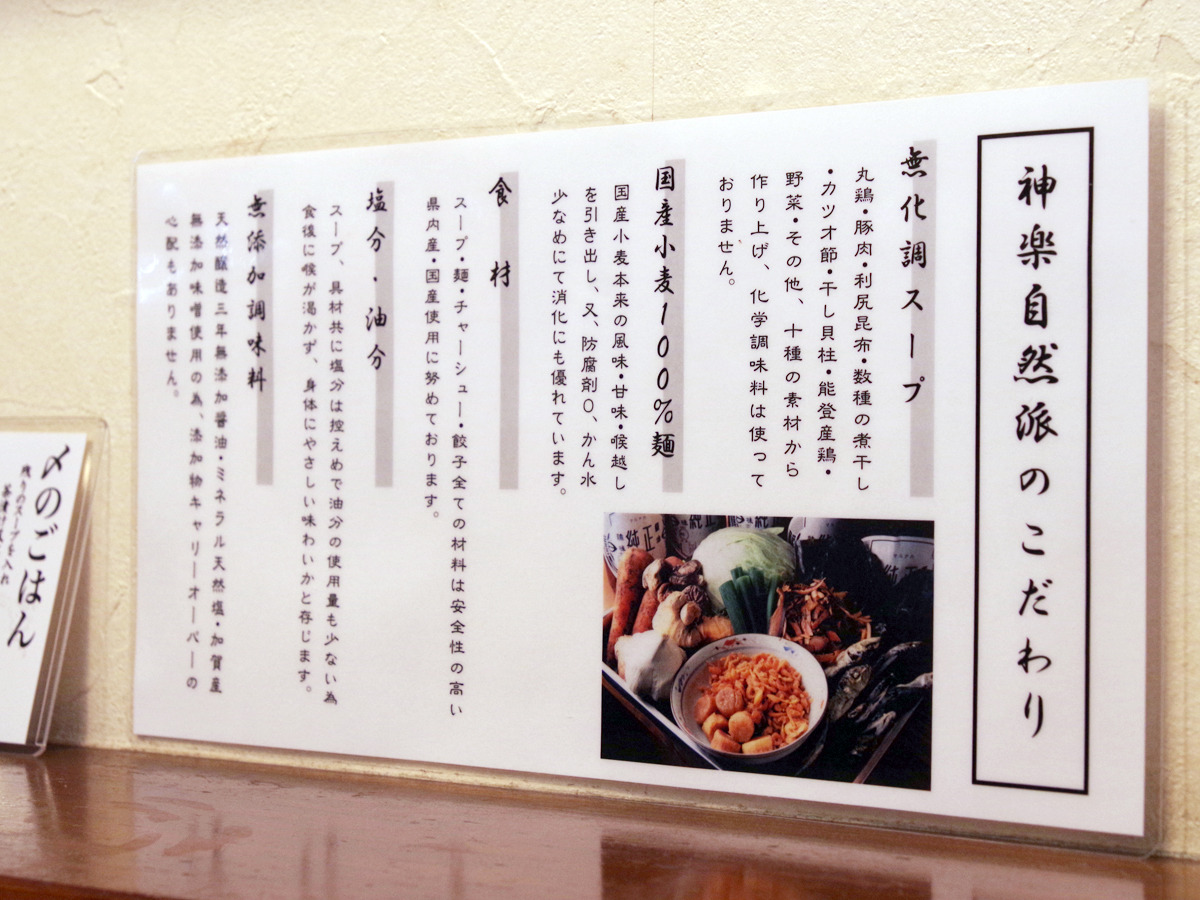 神楽自然派のこだわり
無化調スープ
丸鶏・豚肉・利尻昆布・数種の煮干し
・カツオ節・干し貝柱・能登産鶏・
野菜・その他、十種の素材から
作り上げ、化学調味料は使って
おりません。
国産小麦100%麺
国産小麦本来の風味・甘味・喉越し
を引き出し、又、防腐剤〇、かん水
少なめにて消化にも優れています。
食材
スープ・麺・チャーシュー・餃子全ての材料は安全性の高い
県内産・国産使用に努めております。
塩分・油分
スープ、具材共に塩分は控えめで油分の使用量も少ない為
食後に喉が渇かず、身体にやさしい味わいかと存じます。
無添加調味料
天然醸造三年無添加醤油・ミネラル天然塩・加賀産
無添加味噌使用の為、添加物キャリーオーバーの
心配もありません。
純正
〆のごはん
残りのスープを入れ